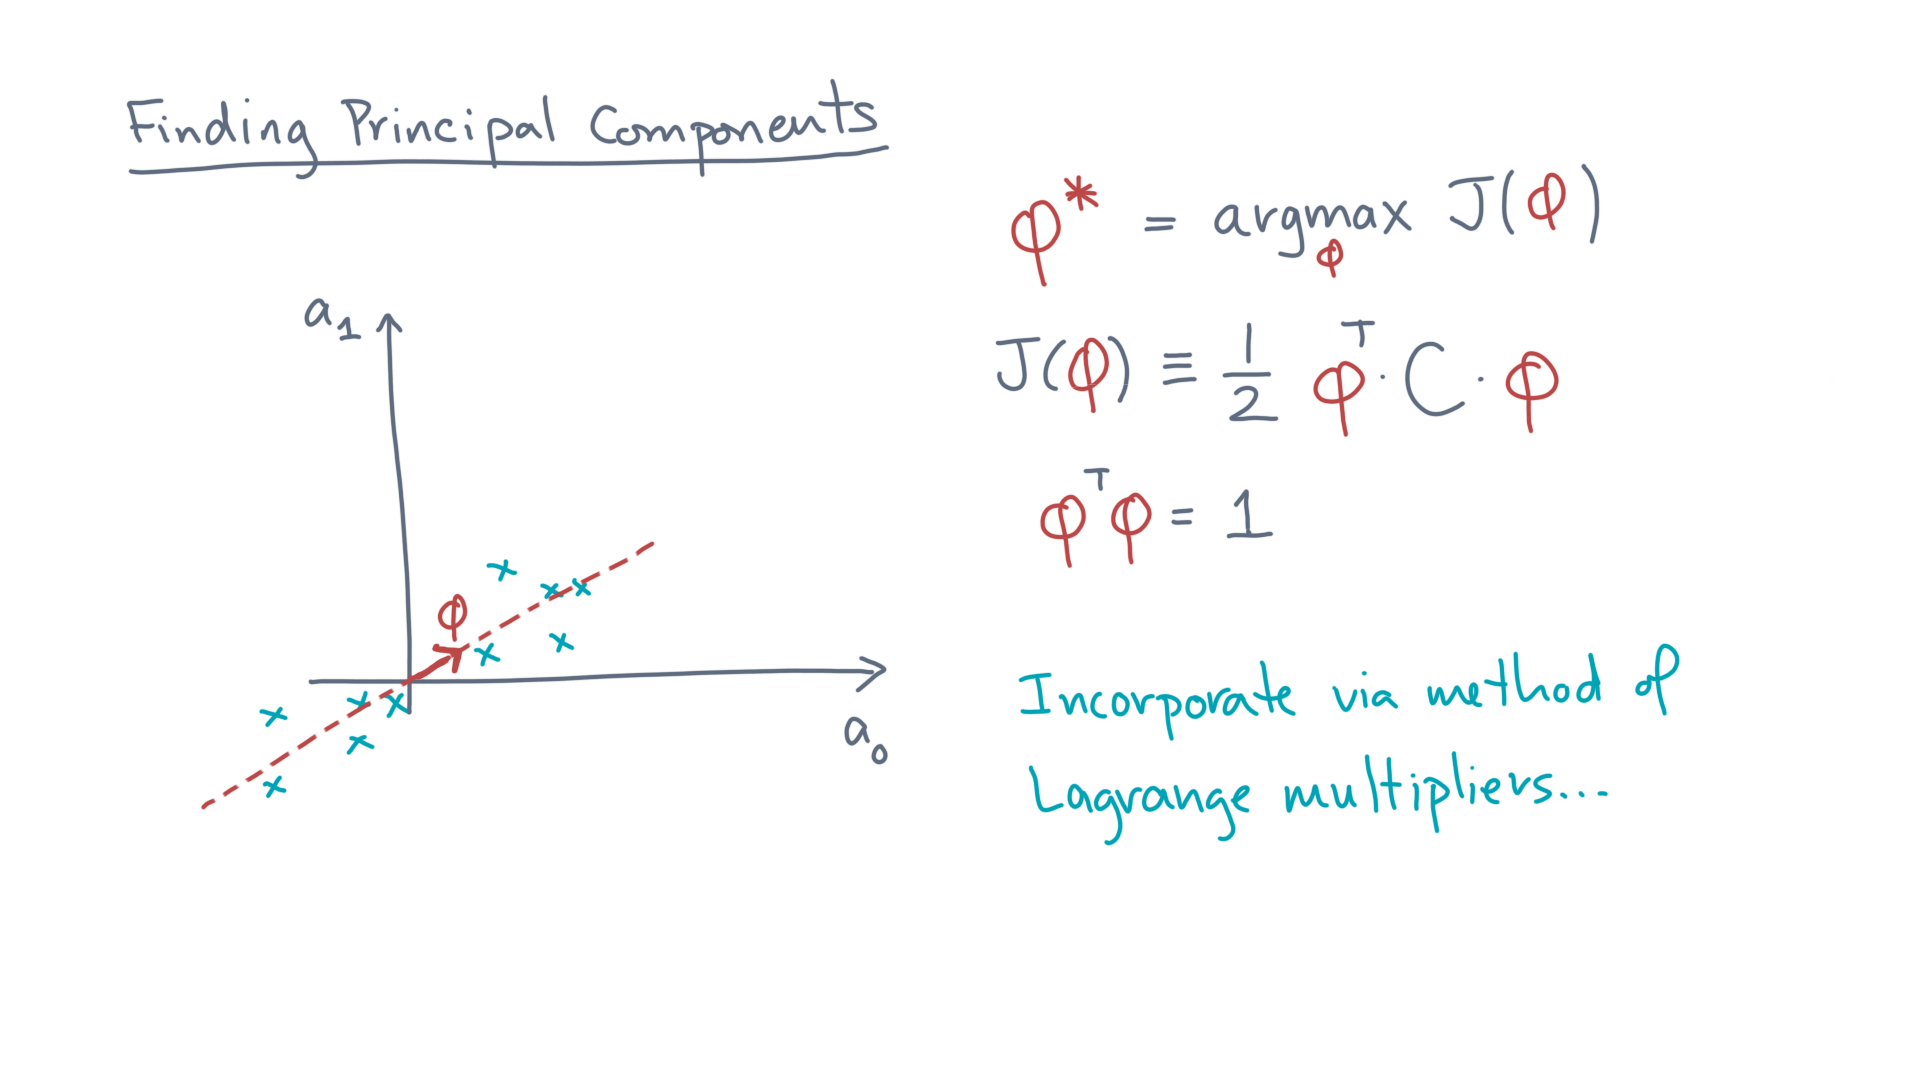 Finding Principal Components
φ* = argmax_φ J(φ)
J(φ) ≡ 1/2 φᵀ · C · φ
φᵀφ = 1
a₁
φ
a₀
Incorporate via method of
Lagrange multipliers...